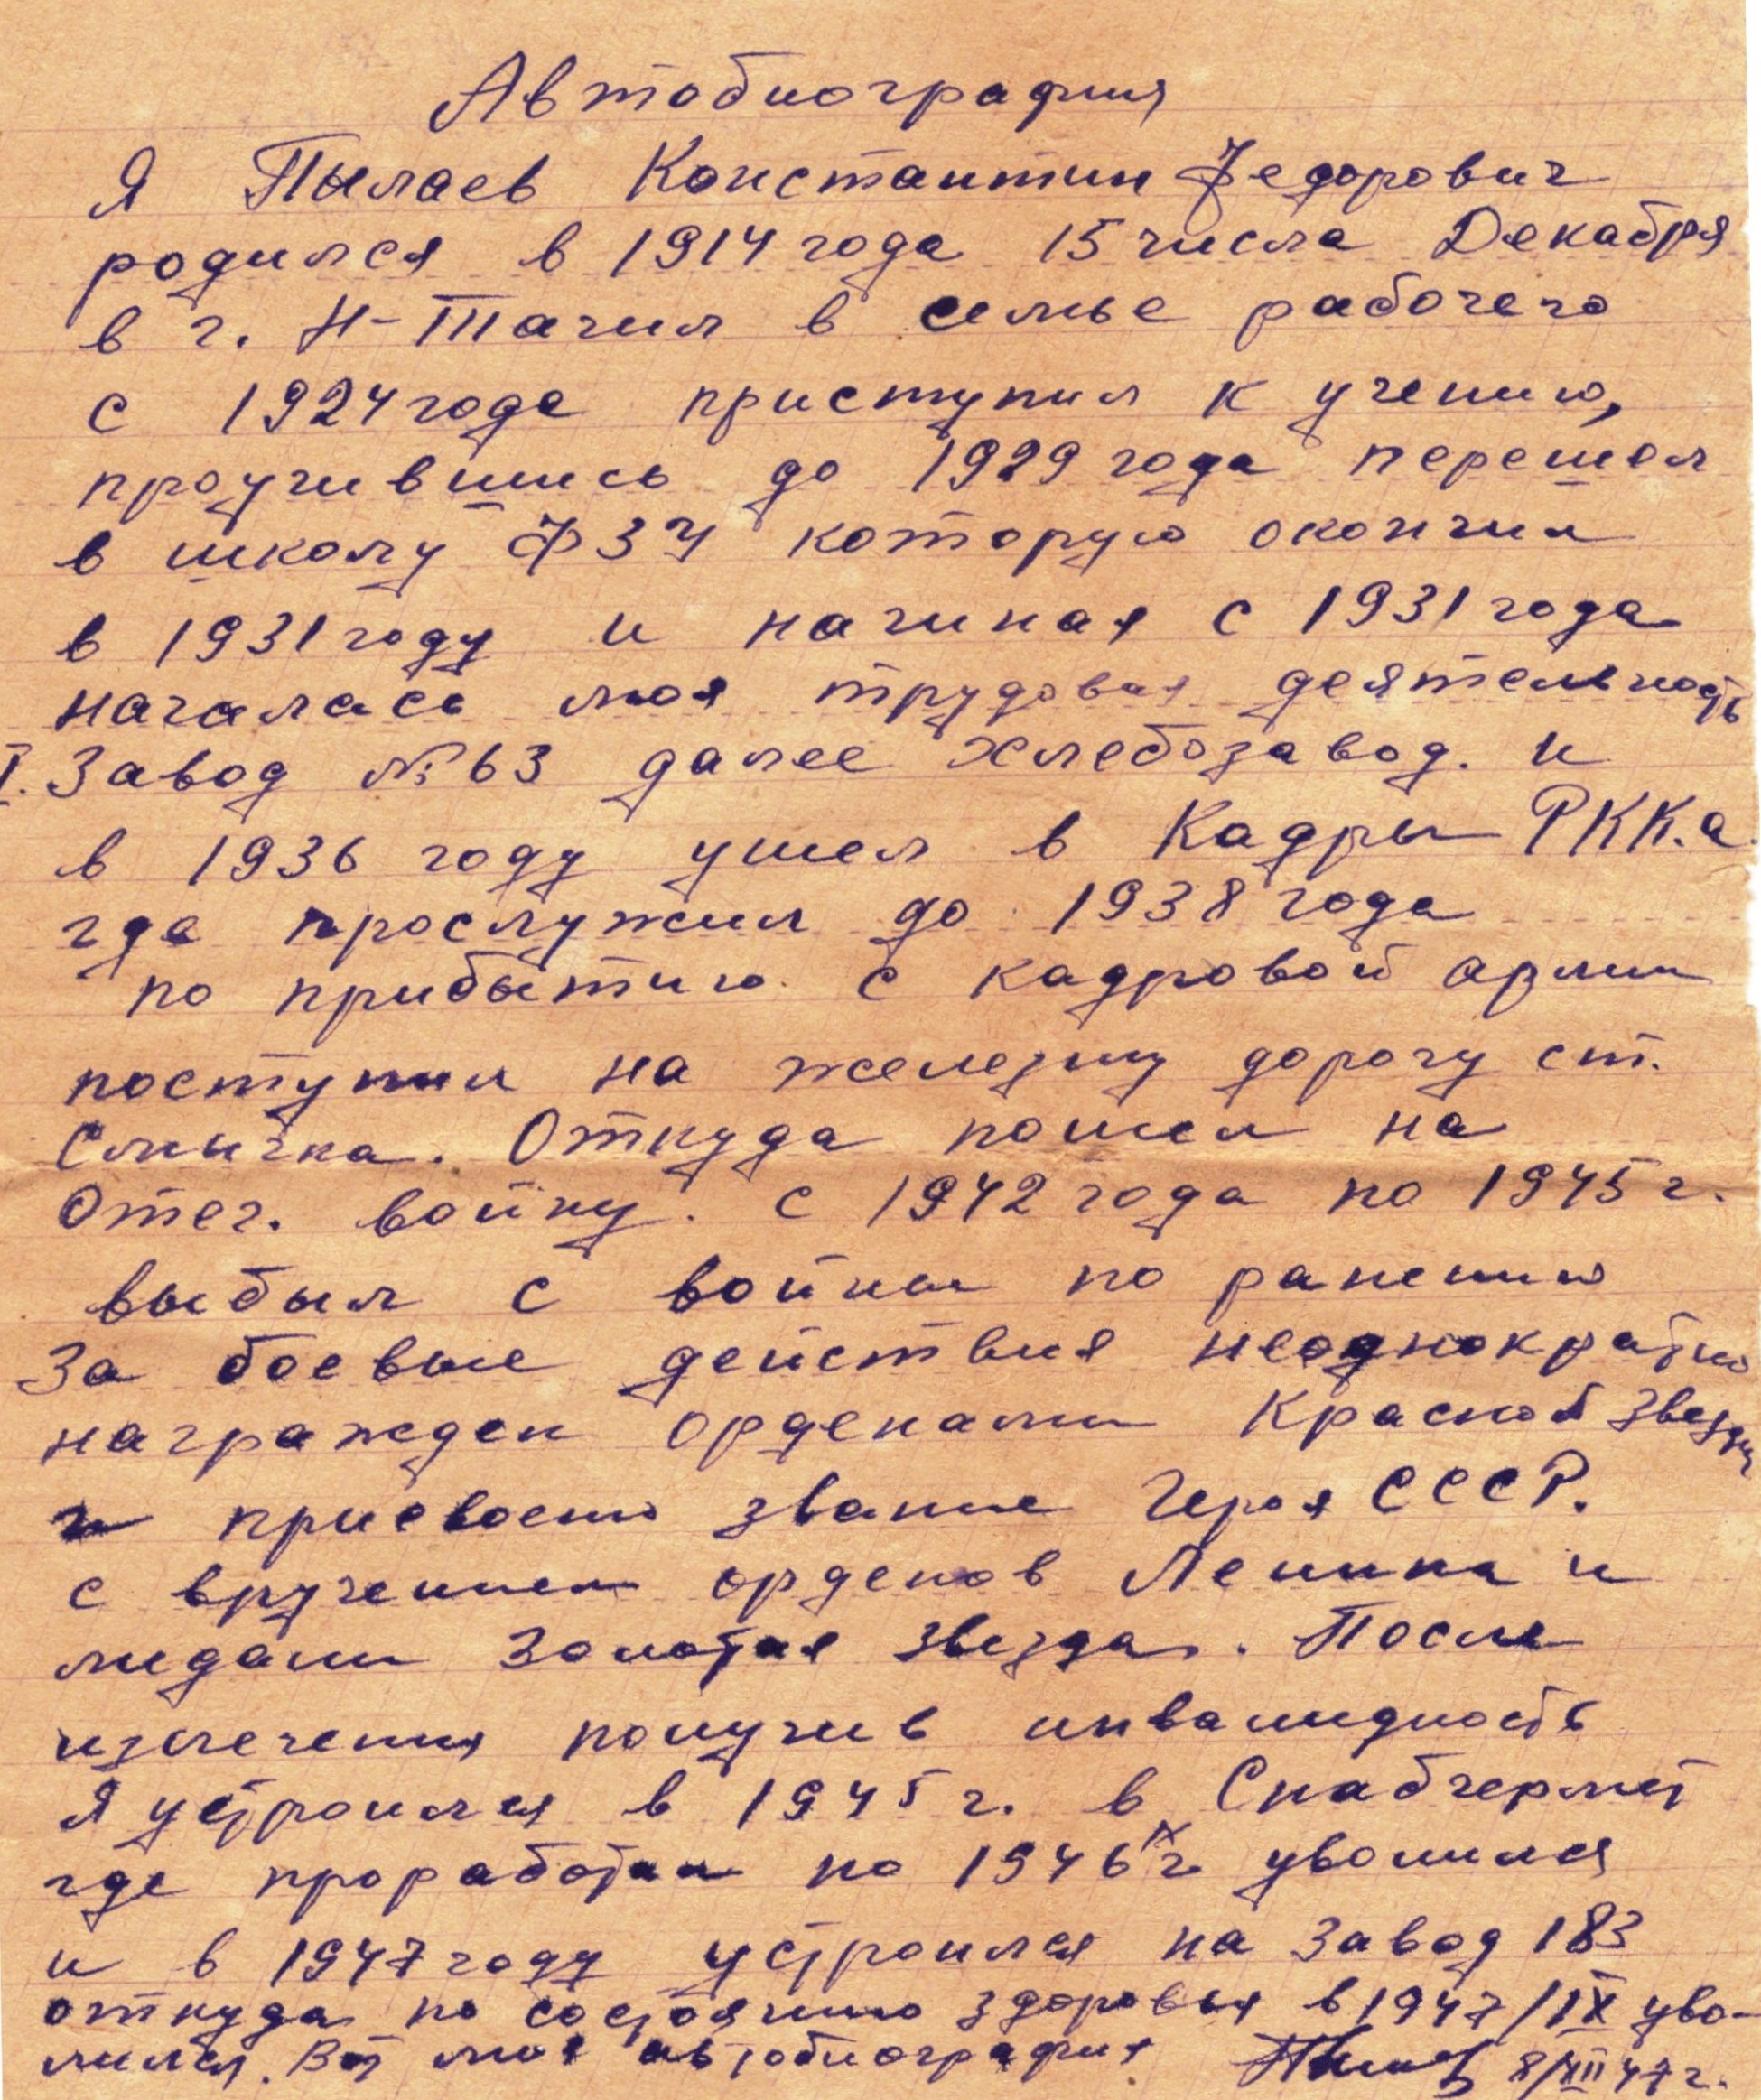 Автобиография
Я Пылаев Константин Федорович
родился в 1914 года 15 числа Декабря
в г. Н-Тагил в семье рабочего
с 1924 года приступил к учению,
проучившись до 1929 года перешел
в школу ФЗУ которую окончил
в 1931 году и начиная с 1931 года
началась моя трудовая деятельность
I. Завод № 63 далее Хлебозавод. и
в 1936 году ушел в Кадры РКК.а.
где прослужил до 1938 года
по прибытию с кадровой армии
поступил на железну дорогу ст.
Смычка. Откуда пошел на
Отеч. войну. с 1942 года по 1945 г.
выбыл с войны по ранению
За боевые действия неоднократно
награжден орденами Красной Звезды
и присвоено звание Героя СССР.
с вручением орденов Ленина и
медали Золотая Звезда. После
излечения получив инвалидность
я устроился в 1945 г. в Снабчермет
где проработал по 1946 IX г. уволился
и в 1947 году устроился на завод 183
откуда по состоянию здоровья в 1947/IX уво-
лился. Вот моя автобиография 8/XII 47 г.